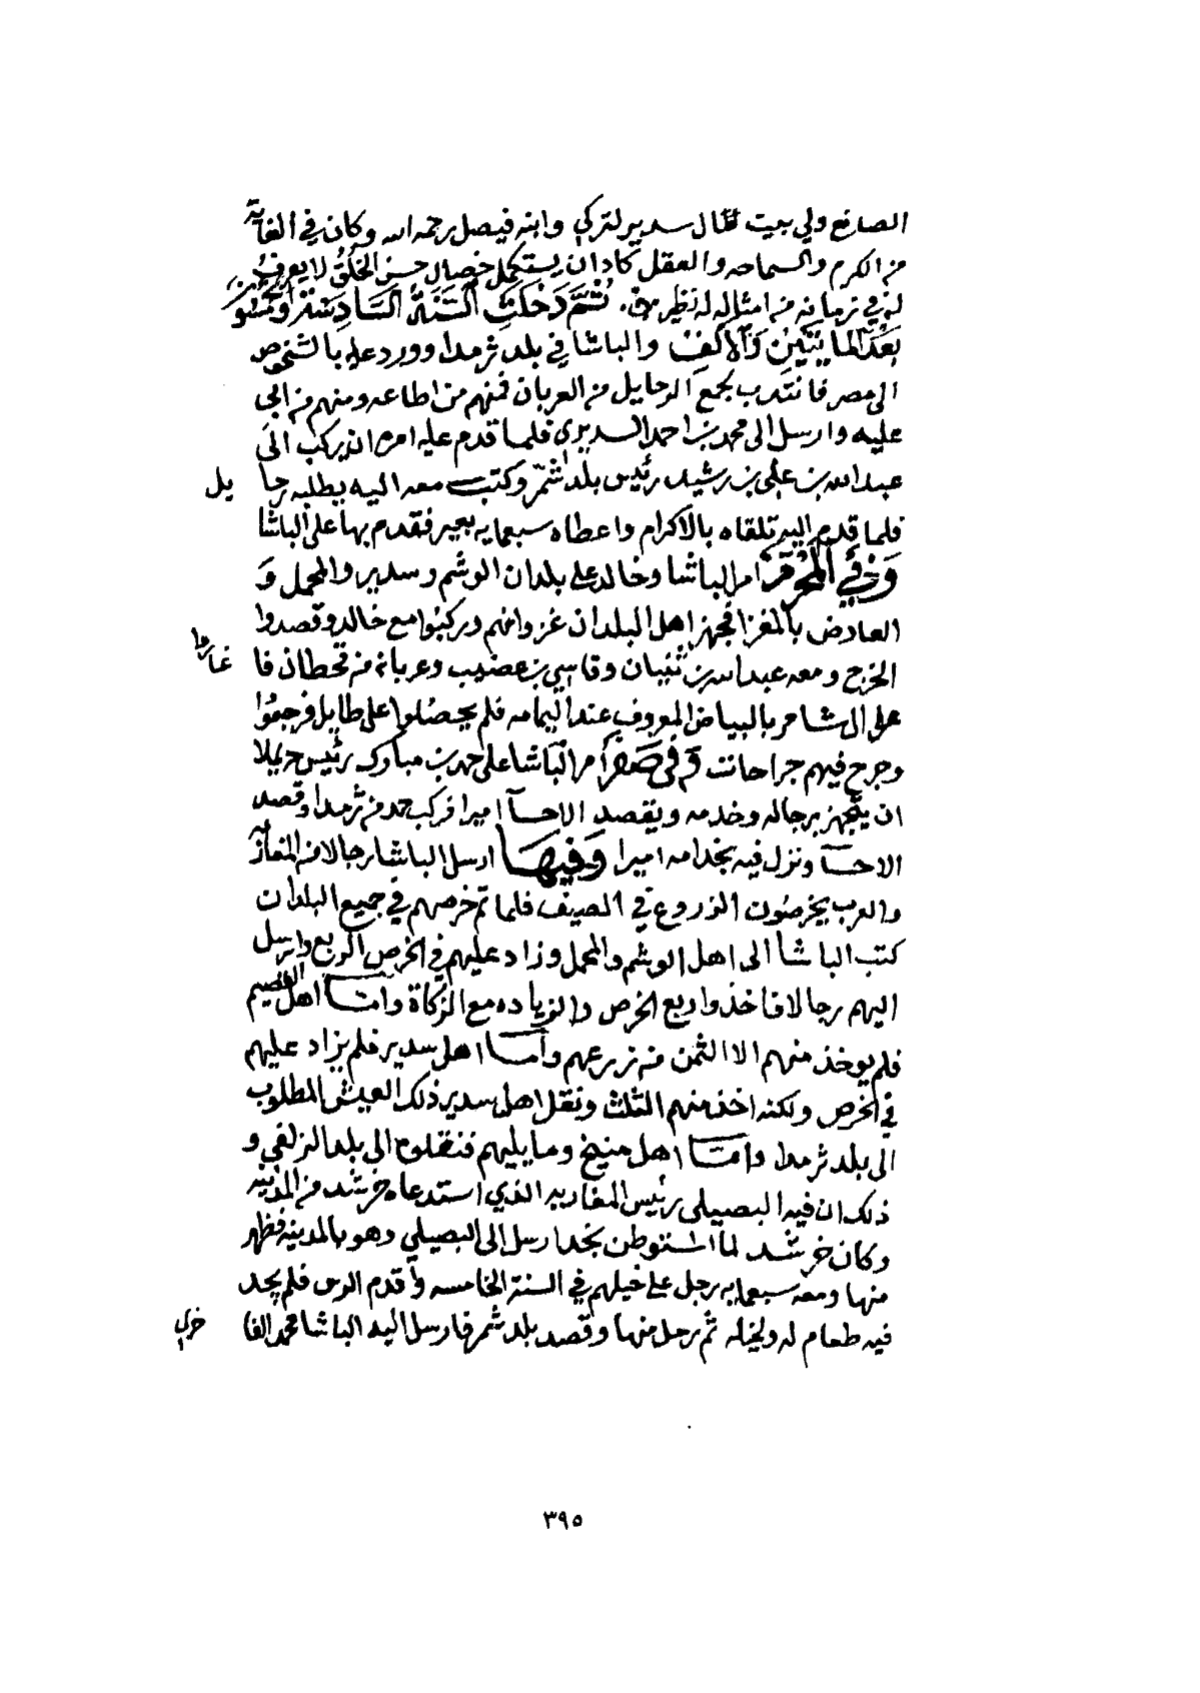 الصانع ولي بيت مال سدير لتركي وابنه فيصل رحمه الله وكان في الغاية
من الكرم والسماحه والعقل كاد ان يستكمل خصال حسن الخلق لا يعرف
له في زمانه من امثاله له نظير ثُمَّ دَخَلَتِ السَّنَةُ السَّادِسَةُ وَخَمْسُونَ
بَعْدَ المايَتَيْن وَالْاَلْف والباشا في بلد ثرمدا وورد عليه بالشخوص
الى مصر فانتدب بجمع الرحايل من العربان فمنهم من اطاعه ومنهم من ابى
عليه وارسل الى محمد بن احمد السديري فلما قدم عليه امره ان يركب الى
عبدالله بن علي بن رشيد رئيس بلد شمّر وكتب معه اليه يطلبه رحايل
فلما قدم اليه تلقاه بالاكرام واعطاه سبعمايه بعير فقدم بها على الباشا
وَفي الْمُحَرَّم امر الباشا وخالد على بلدان الوشم وسدير والمحمل و
العارض بالمغزا فجهز اهل البلدان غزوانهم وركبوا مع خالد وقصدوا
الخرج ومعه عبدالله بن ثنيان وقاسي بن عضيب وعربانه من قحطان فاغاروا
على ال شامر بالبياض المعروف عند اليمامه فلم يحصلوا على طايل فرجعوا
وجرح فيهم جراحات وَفي صَفَر أمر الباشا على حمد بن مبارك رئيس حريملا
ان يتجهز برجاله وخدمه ويقصد الاحسآ اميرا فركب حمد من ثرمدا وقصد
الاحسآ ونزل فيه بخدامه اميرا وَفِيهَا ارسل الباشا رجالا من المغاربه
والعرب يخرصون الزروع في الصيف فلما تم خرصهم في جميع البلدان
كتب الباشا الى اهل الوشم والمحمل وزاد عليهم في الخرص الربع وارسل
اليهم رجالا فاخذوا ربع الخرص والزياده مع الزكاة وامّا اهل القصيم
فلم يوخذ منهم الا الثمن من زرعهم وأمّا اهل سدير فلم يزاد عليهم
في الخرص ولكنه اخذ منهم الثلث ونقل اهل سدير ذلك العيش المطلوب
الى بلد ثرمدا وامّا اهل منيخ وما يليهم فنقلوه الى بلد الزلفي و
ذلك ان فيه البصيلي رئيس المغاربه الذي استدعاه خرشد من المدينه
وكان خرشد لما استوطن نجدا ارسل الى البصيلي وهو بالمدينه فظهر
منها ومعه سبعمايه رجل على خيلهم في السنة الخامسه وأقدم الرس فلم يجد
فيه طعام له ولخيله ثم رحل منها وقصد بلد شمر فارسل اليه الباشا محمد الفاخري
٣٩٥